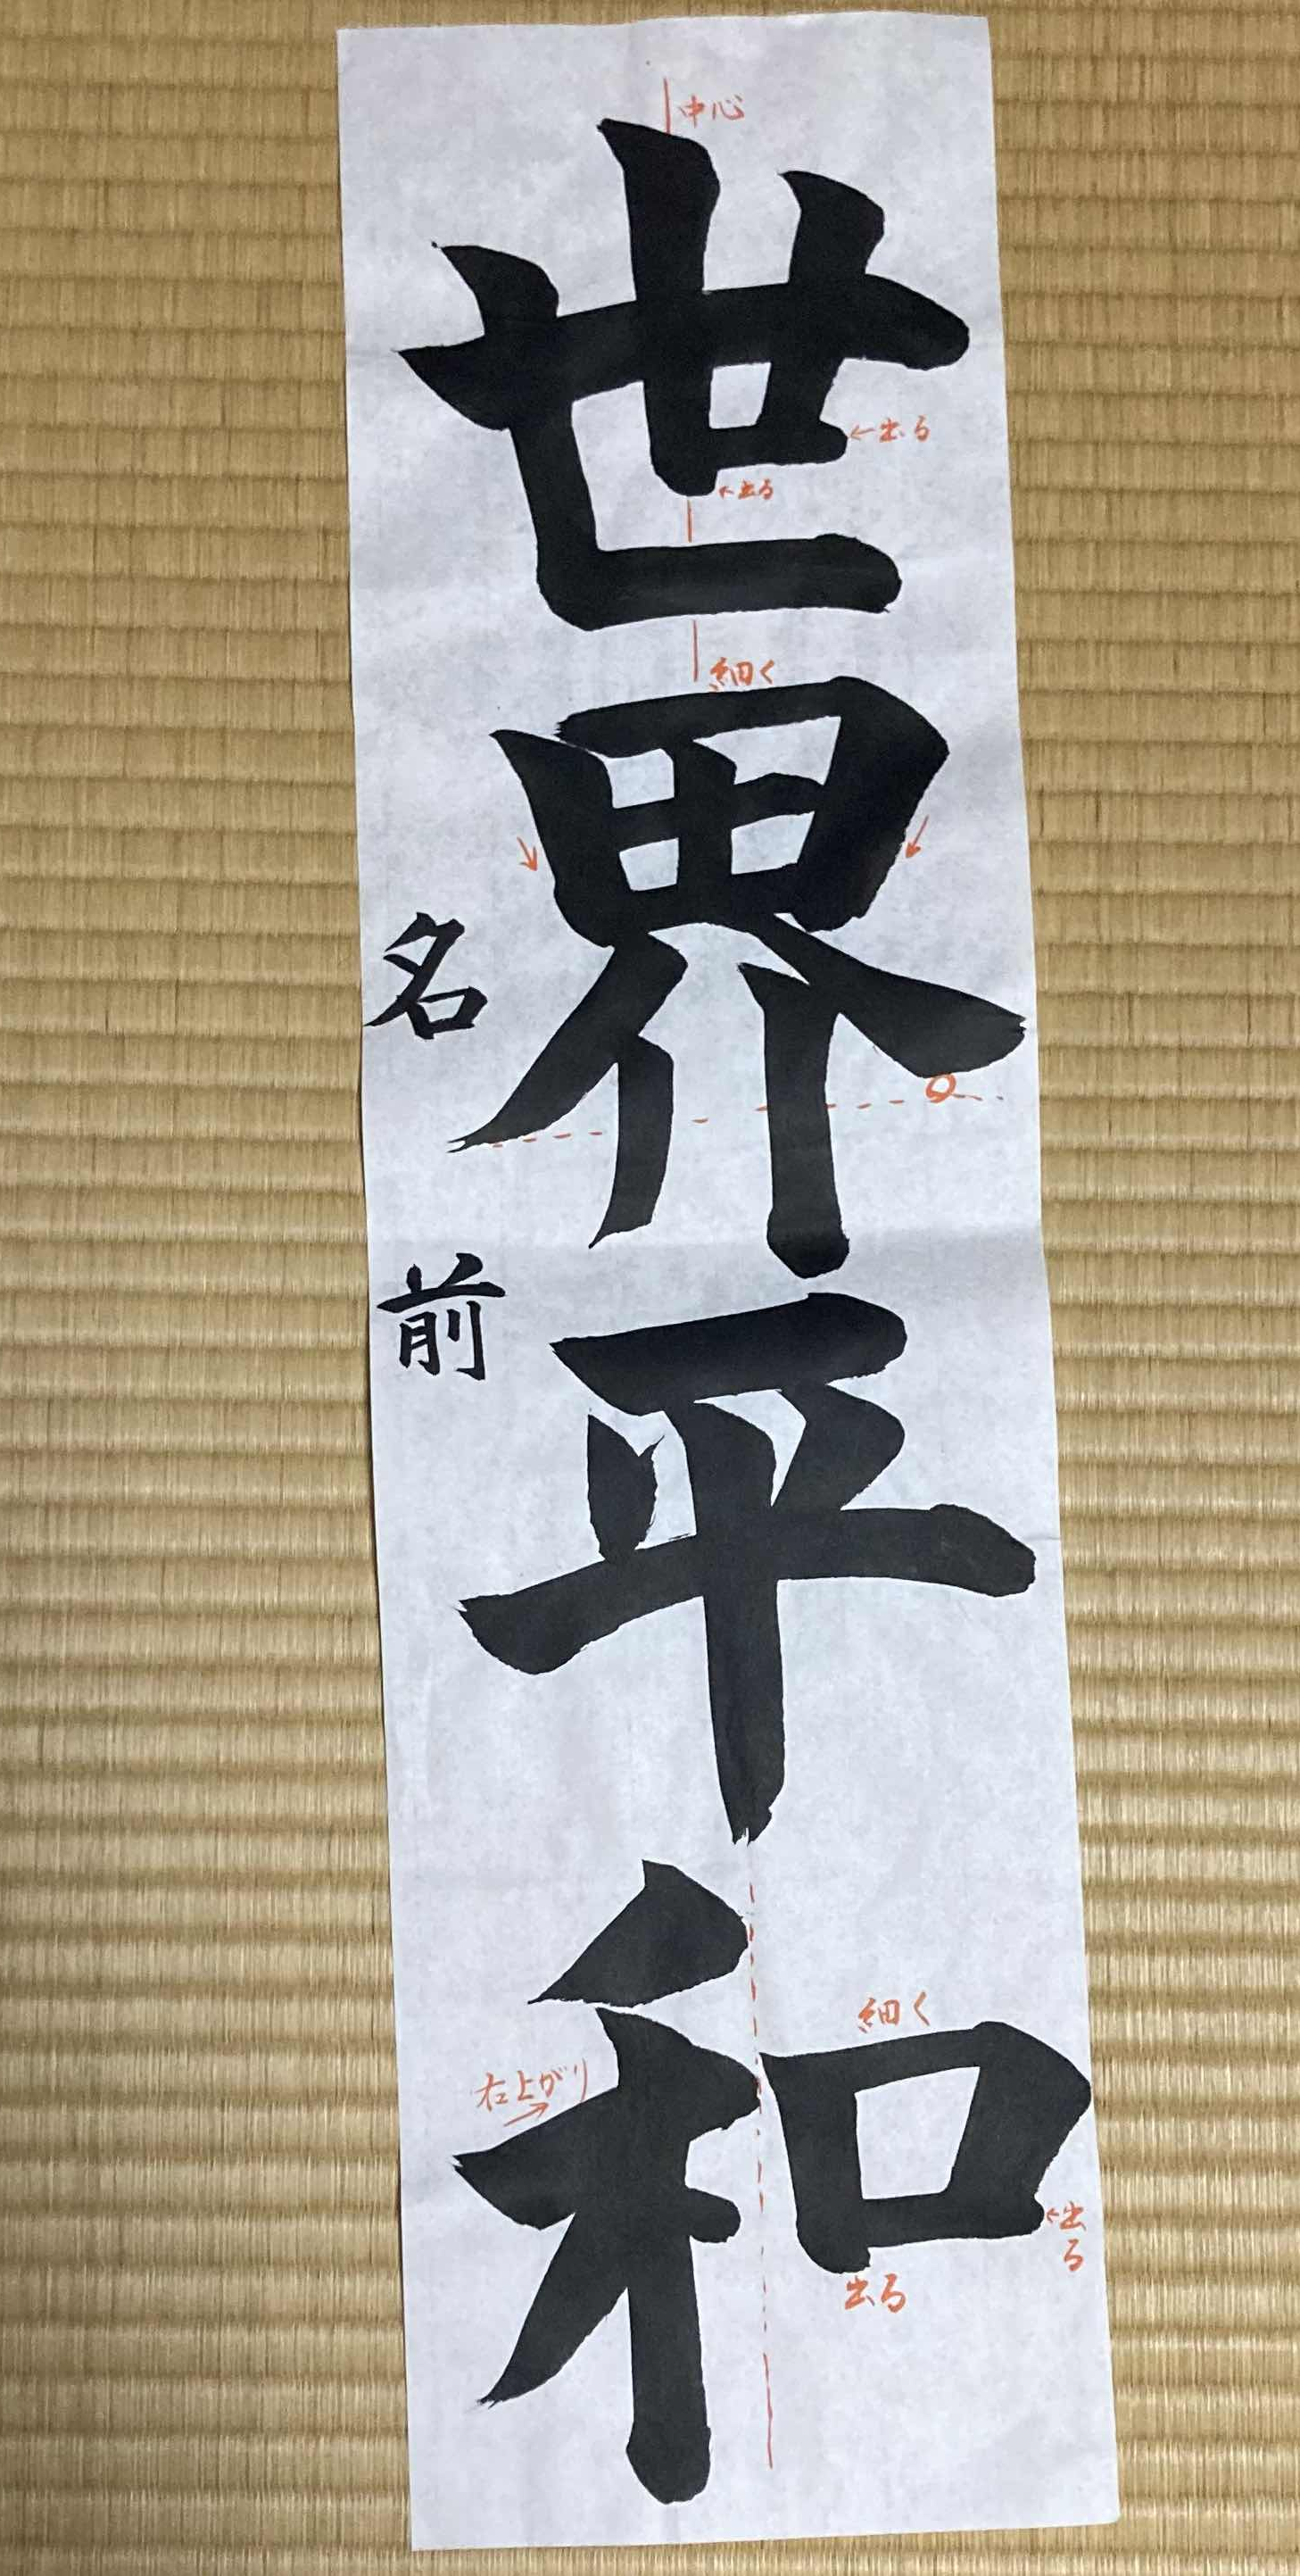 世界平和
名前
中心
←出る
←出る
細く
細く
右上がり
←出る
出る